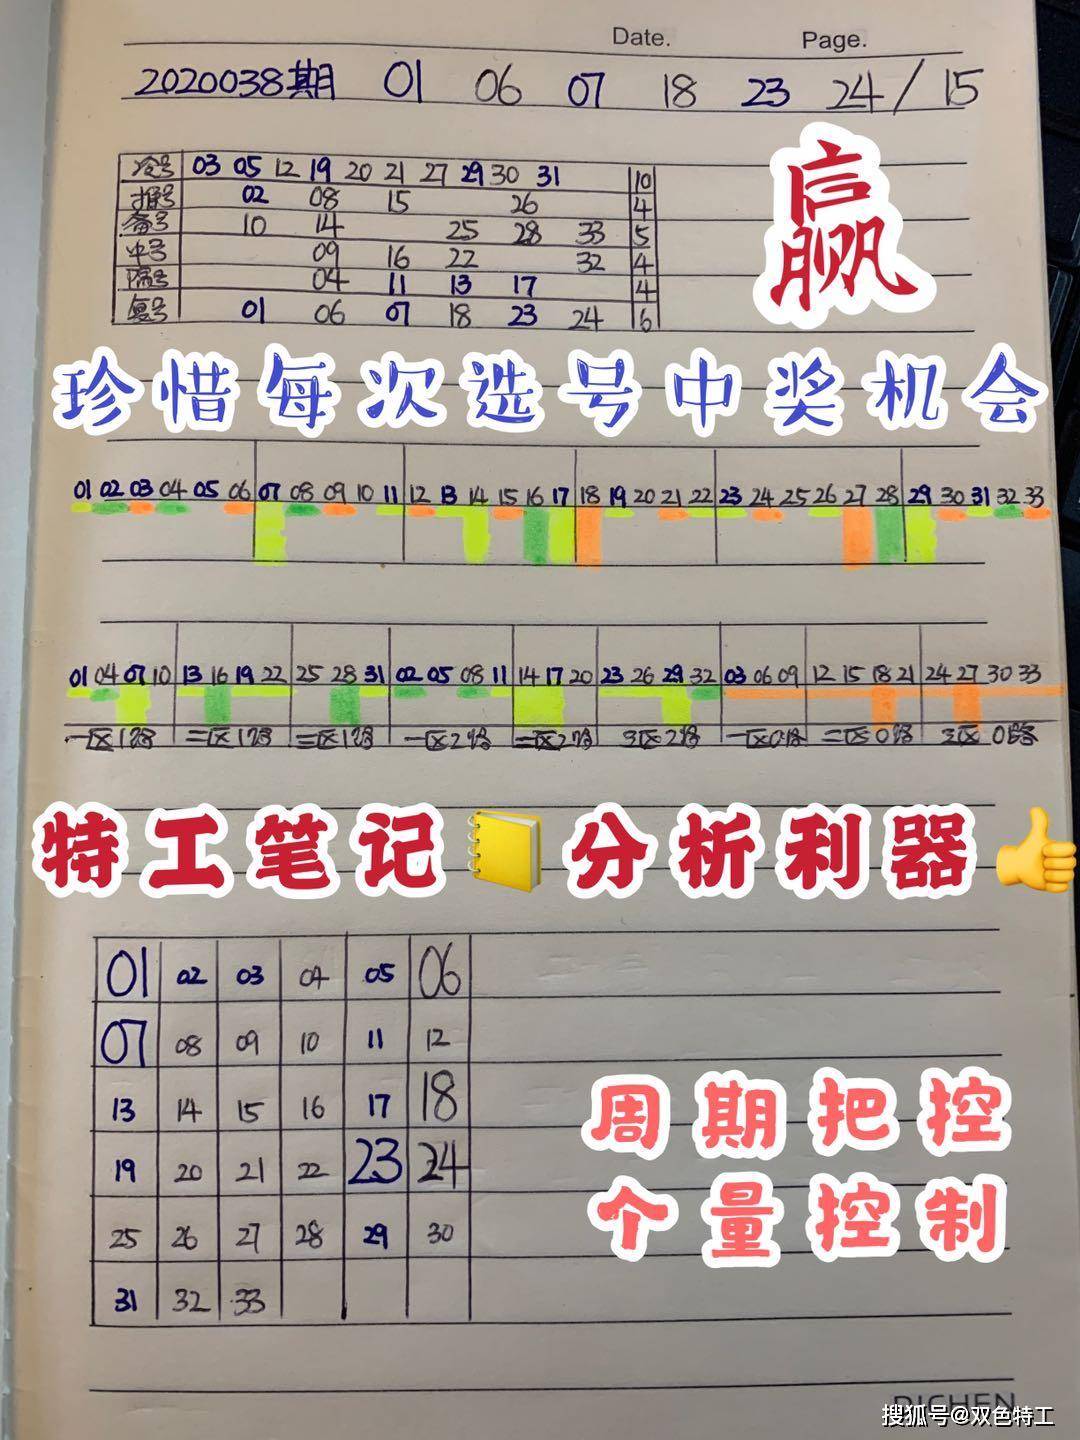 Date. Page.
2020038期 01 06 07 18 23 24 / 15
赢
冷号 03 05 12 19 20 21 27 29 30 31 10
02 08 15 26 4
备号 10 14 25 28 33 5
中号 09 16 22 32 4
隔号 04 11 13 17 4
复号 01 06 07 18 23 24 6
珍惜每次选号中奖机会
01 02 03 04 05 06 07 08 09 10 11 12 13 14 15 16 17 18 19 20 21 22 23 24 25 26 27 28 29 30 31 32 33
01 04 07 10 13 16 19 22 25 28 31 02 05 08 11 14 17 20 23 26 29 32 03 06 09 12 15 18 21 24 27 30 33
一区1路 二区1路 三区1路 一区2路 二区2路 3区2路 一区0路 二区0路 3区0路
特工笔记📒分析利器👍
01 02 03 04 05 06
07 08 09 10 11 12
13 14 15 16 17 18
19 20 21 22 23 24
25 26 27 28 29 30
31 32 33
周期把控
个量控制
DICHEN
搜狐号@双色特工